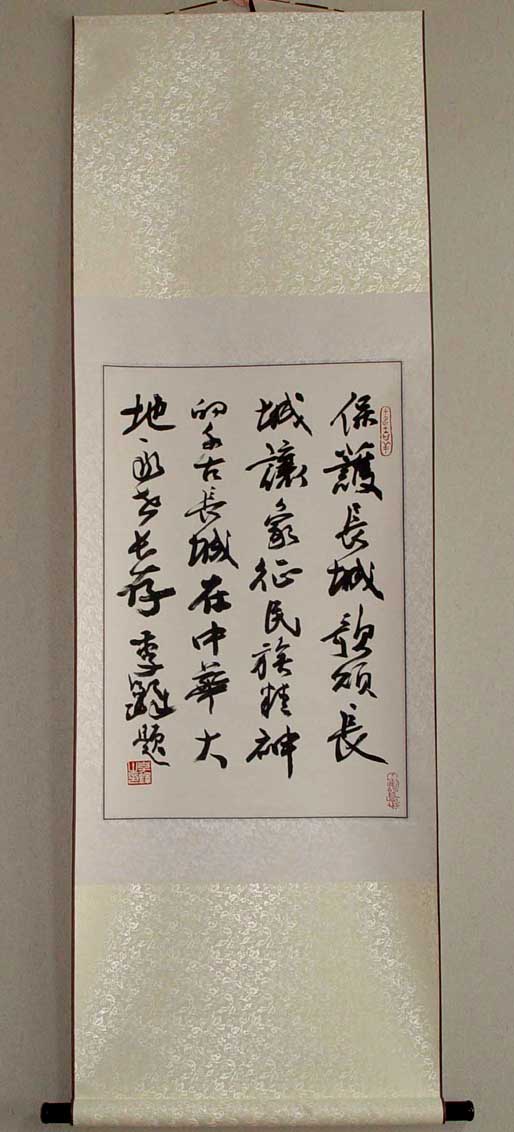 保護長城歌頌長
城讓象征民族精神
的千古長城在中華大
地永世长存 李鐸題